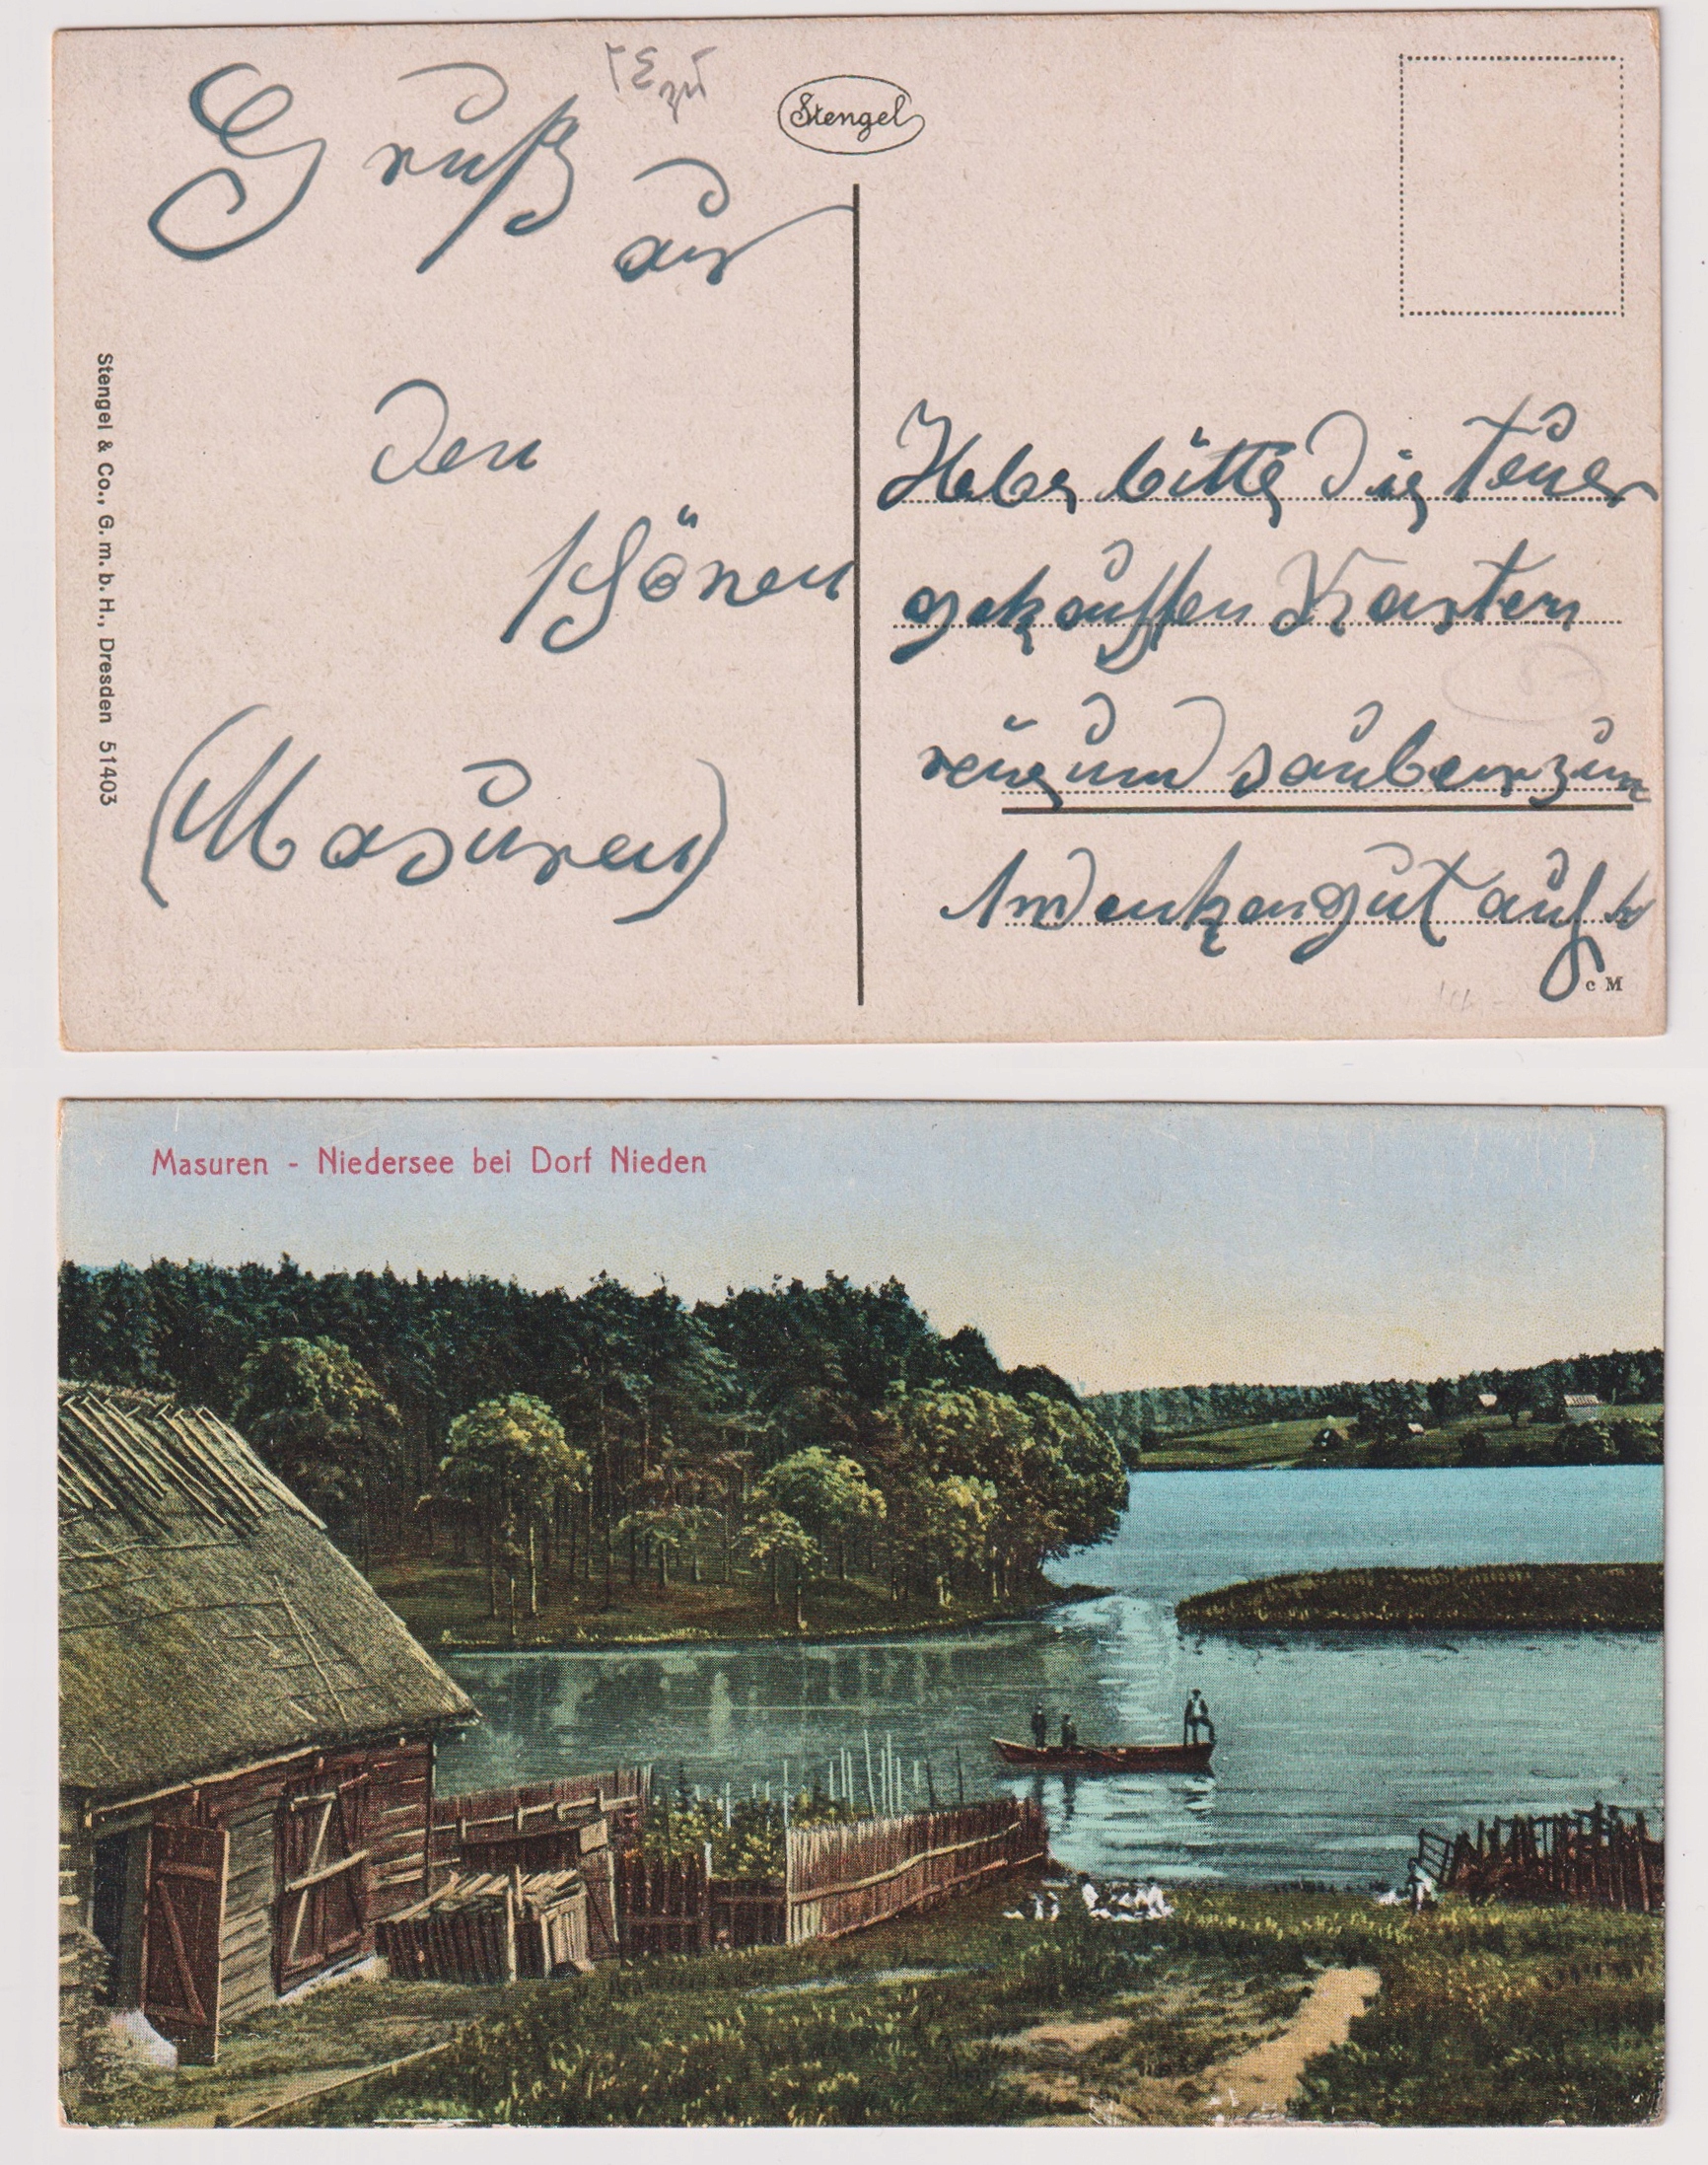 Stengel
Gruß
aus
den
schönen
(Masuren)
Stengel & Co., G. m. b. H., Dresden 51403
Hebe bitte die teuer
gekauften Karten
rein und sauber zum
Andenken gut auf
c M
Masuren - Niedersee bei Dorf Nieden